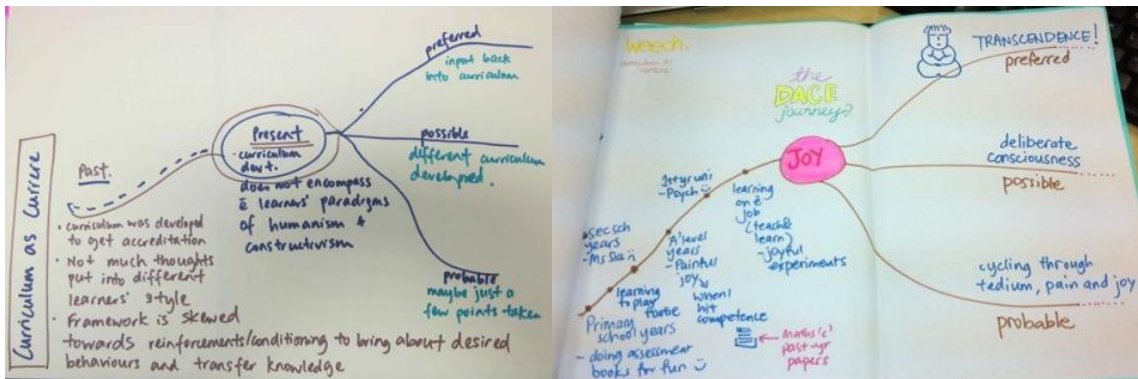 Curriculum as currere
Past.
• curriculum was developed
to get accreditation
• Not much thoughts
put into different
learners' style
• Framework is skewed
towards reinforcements/conditioning to bring about desired
behaviours and transfer knowledge
Present
- curriculum
devt.
does not encompass
ē learners' paradigms
of humanism &
constructivism
preferred
input back
into curriculum
possible
different curriculum
developed.
probable
maybe just a
few points taken
weech.
the
DACE
journey?
JOY
TRANSCENDENCE!
preferred
deliberate
consciousness
possible
cycling through
tedium, pain and joy
probable
Primary
school years
- doing assessment
books for fun
sec sch
years
learning
to play
A'level
years
- Painful
joy
when I
hit
competence
Maths 'C'
past-yr
papers
- Psych
learning
on ē
job
(teach &
learn)
- joyful
experiments